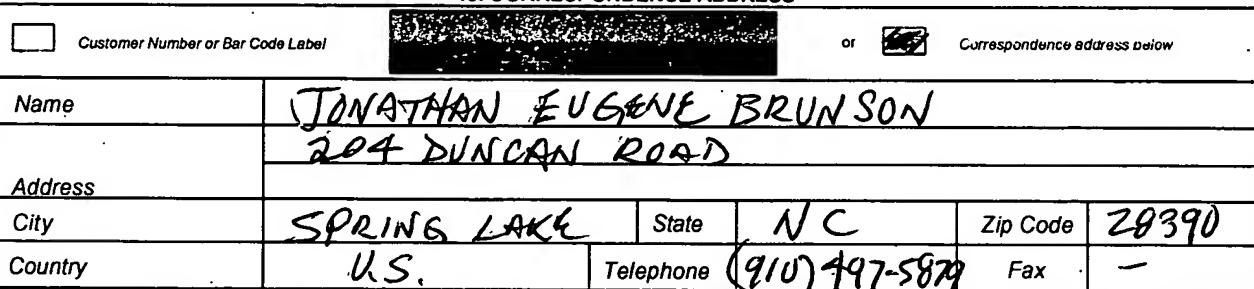 CORRESPONDENCE ADDRESS
Customer Number or Bar Code Label or Correspondence address below
Name JONATHAN EUGENE BRUNSON
204 DUNCAN ROAD
Address
City SPRING LAKE State NC Zip Code 28390
Country U.S. Telephone (910) 497-5879 Fax —